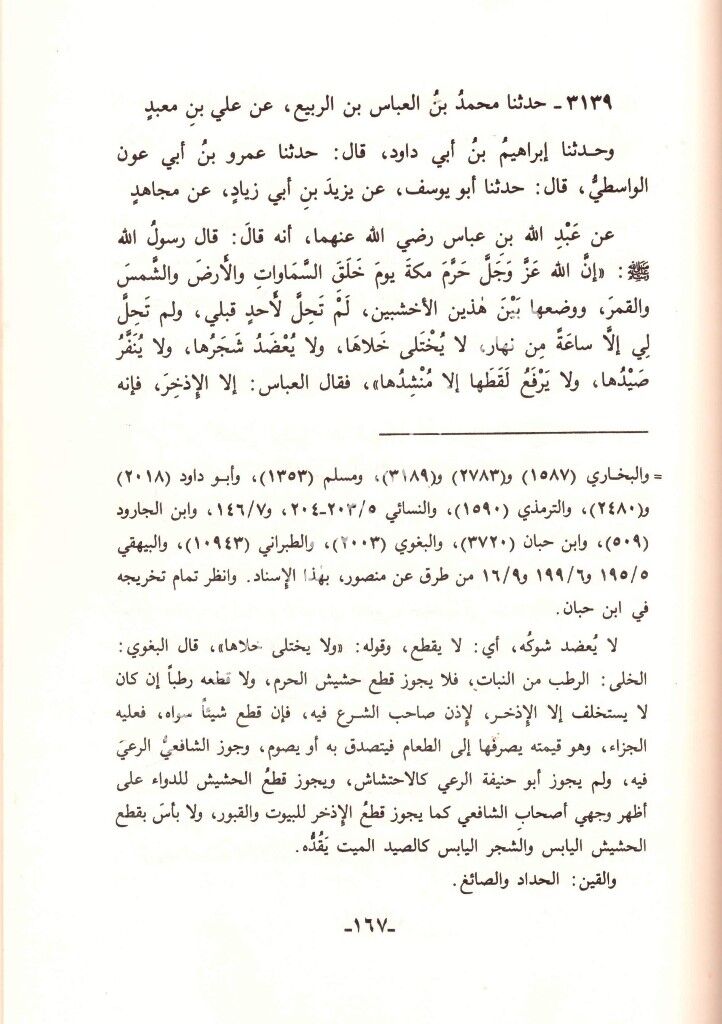 ٣١٣٩ ـ حدثنا محمدُ بنُ العباس بن الربيع، عن علي بنِ معبدٍ
وحـدثنا إبراهيمُ بنُ أبي داود، قال: حدثنا عمرو بنُ أبي عون
الواسطيُّ، قال: حدثنا أبو يوسف، عن يزيدَ بنِ أبي زيادٍ، عن مجاهدٍ
عن عَبْدِ الله بنِ عباس رضي الله عنهما، أنه قالَ: قال رسولُ الله
ﷺ: «إنَّ الله عَزَّ وَجَلَّ حَرَّمَ مكةَ يومَ خَلَقَ السَّمَاواتِ والأرضَ والشَّمسَ
والقمرَ، ووضعها بَيْنَ هٰذين الأخشبين، لَمْ تَحِلَّ لأحدٍ قبلي، ولم تَحِلَّ
لِي إلَّا ساعَةً مِن نهار، لا يُخْتَلى خَلاهَا، ولا يُعْضَدُ شَجَرُها، ولا يُنَفَّرُ
صَيْدُها، ولا يَرْفَعُ لَقَطَها إلا مُنْشِدُها»، فقال العباس: إلا الإِذخِرَ، فإنه
= والبخـاري (١٥٨٧) و(٢٧٨٣) و(٣١٨٩)، ومسلم (١٣٥٣)، وأبـو داود (٢٠١٨)
و(٢٤٨٠)، والترمذي (١٥٩٠)، والنسائي ٢٠٣/٥-٢٠٤، و١٤٦/٧، وابن الجارود
(٥٠٩)، وابن حبان (٣٧٢٠)، والبغوي (٢٠٠٣)، والطبراني (١٠٩٤٣)، والبيهقي
١٩٥/٥ و١٩٩/٦ و١٦/٩ من طرق عن منصور، بهٰذا الإِسناد. وانظر تمام تخريجه
في ابن حبان.
لا يُعضد شوكُه، أي: لا يقطع، وقوله: «ولا يختلى خلاها»، قال البغوي:
الخلى: الرطب من النبات، فلا يجوز قطع حشيش الحرم، ولا قطعه رطباً إن كان
لا يستخلف إلا الإِذخـر، لإِذن صاحب الشـرع فيه، فإن قطع شيئاً سواه، فعليه
الجزاء، وهو قيمته يصرفها إلى الطعام فيتصدق به أو يصوم، وجوز الشافعيُّ الرعيَ
فيه، ولم يجوز أبو حنيفة الرعي كالاحتشاش، ويجوز قطعُ الحشيش للدواء على
أظهر وجهي أصحابِ الشافعي كما يجوز قطعُ الإِذخر للبيوت والقبور، ولا بأسَ بقطع
الحشيش اليابس والشجر اليابس كالصيد الميت يَقُدُّه.
والقين: الحداد والصائغ.
-١٦٧-